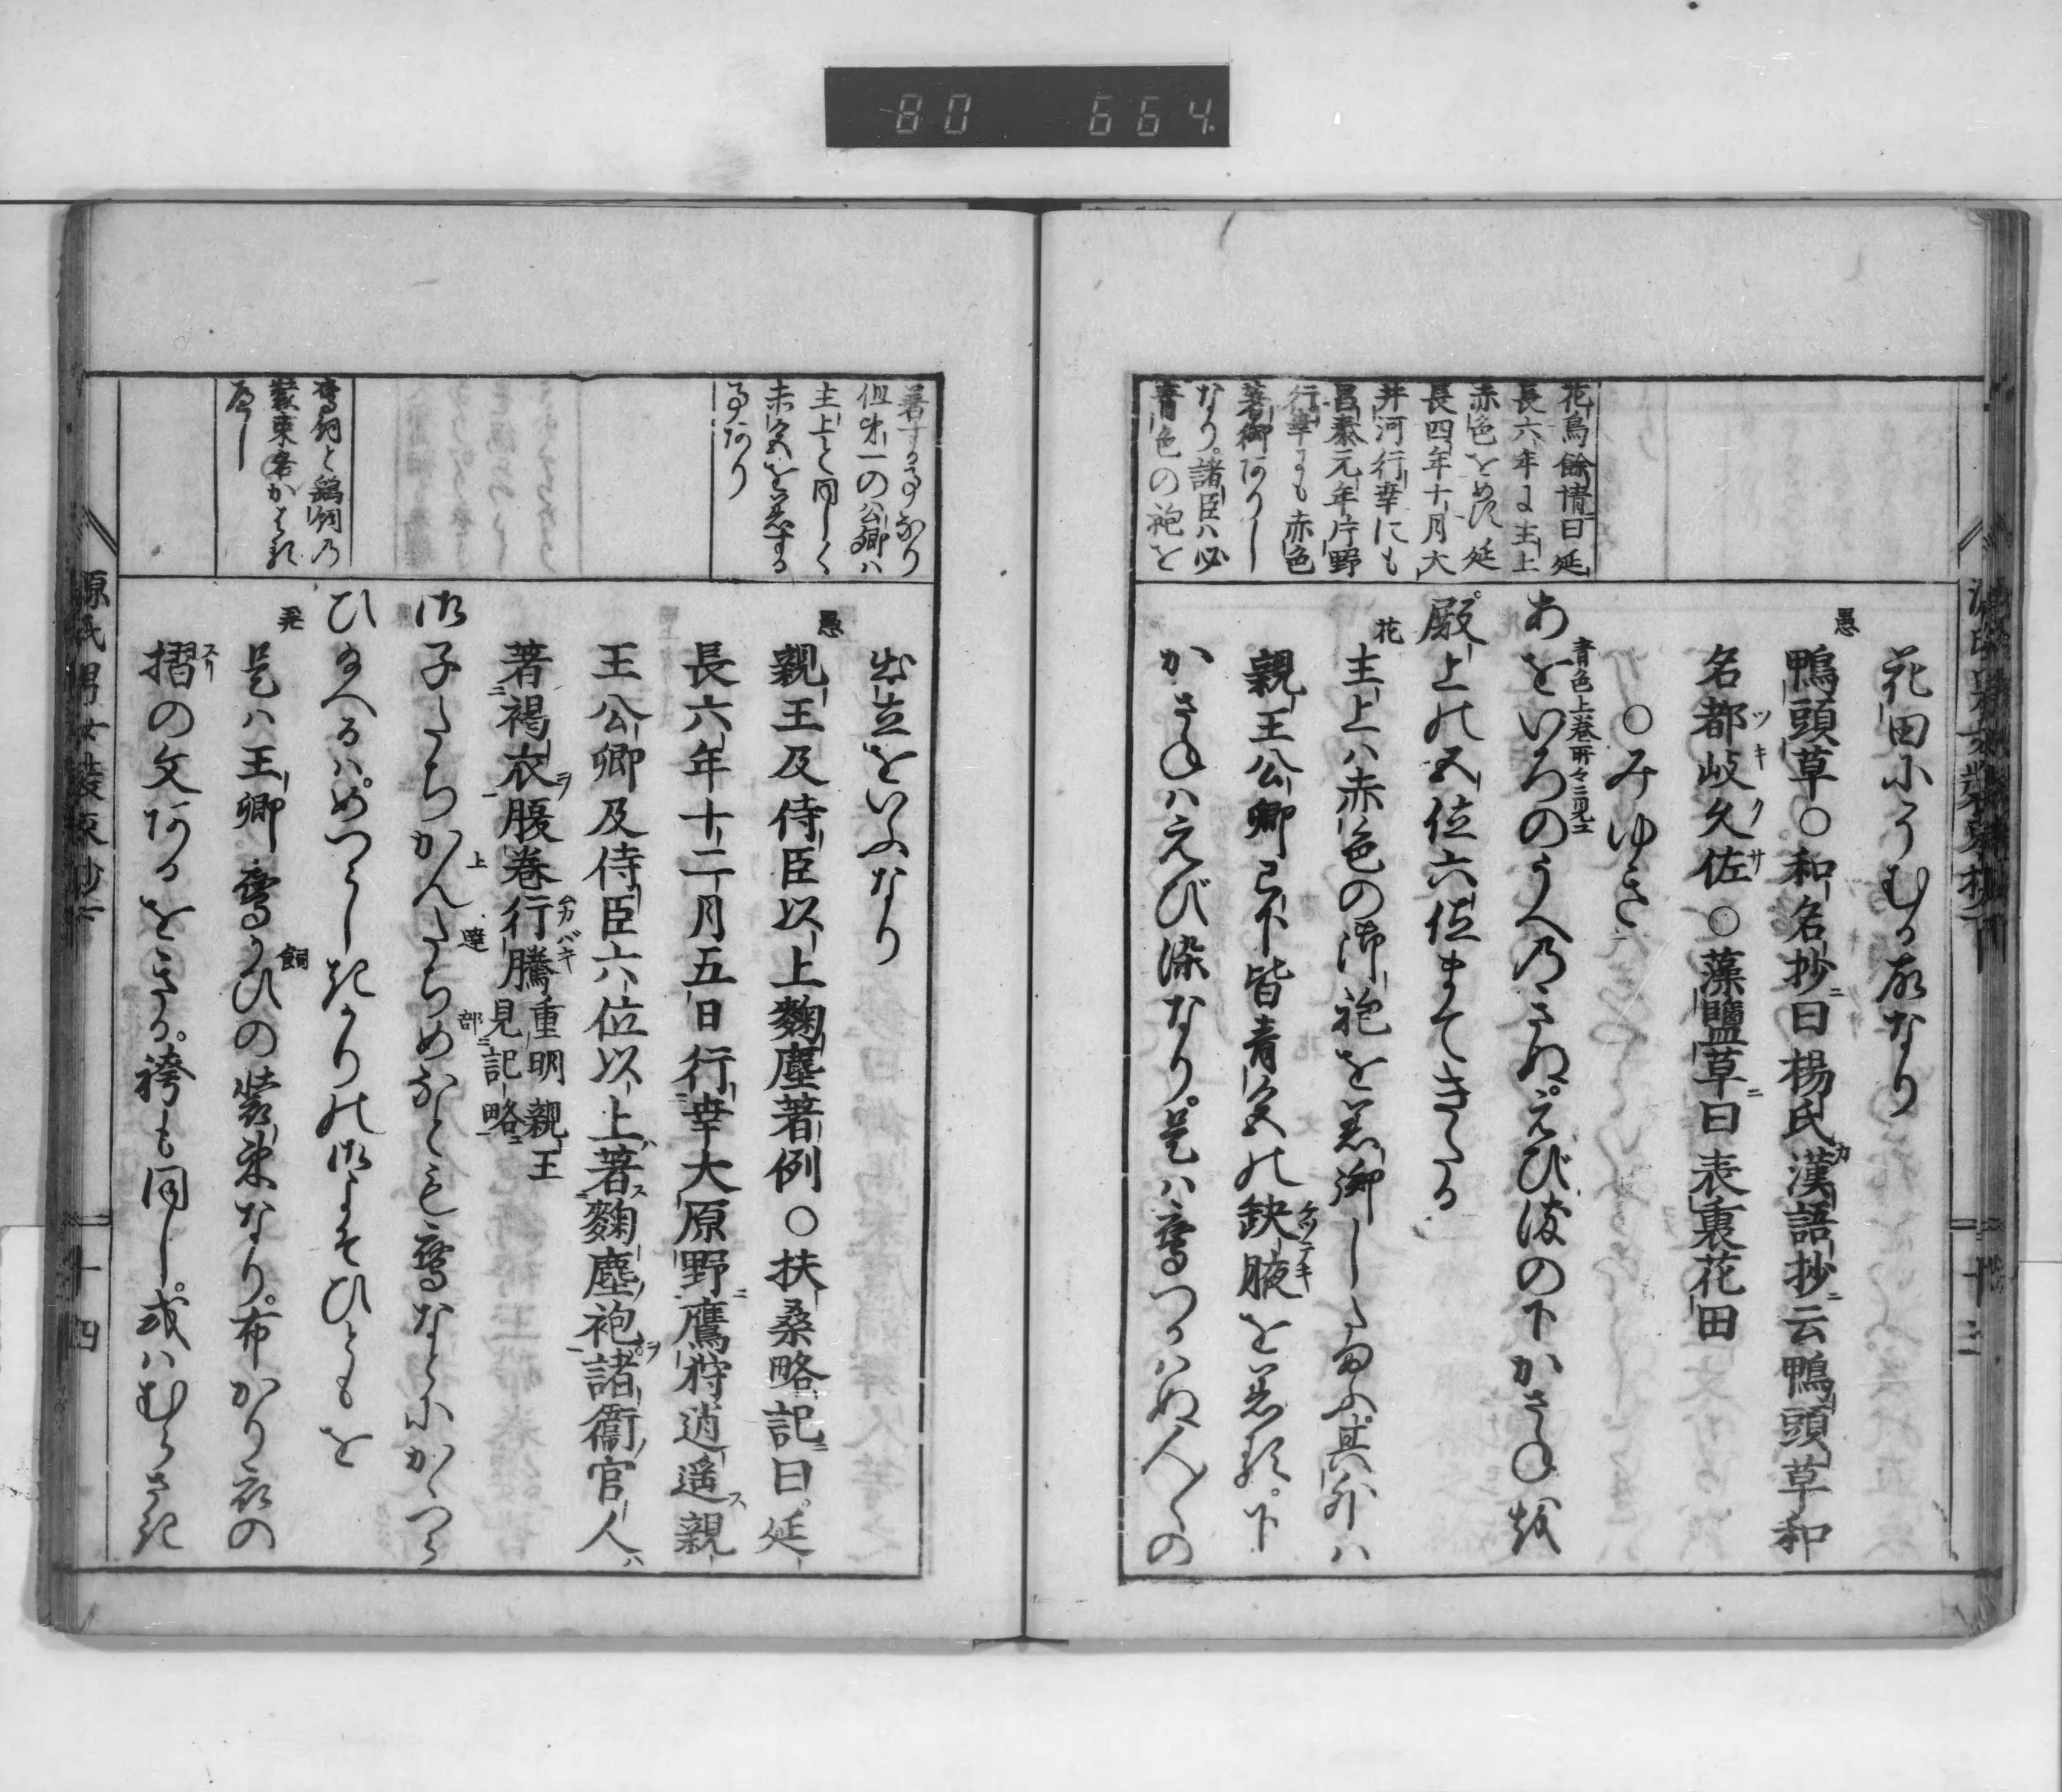 80 664
花鳥餘情曰延
長六年に主上
赤色をめす延
長四年十月大
井河行幸にも
昌泰元年片野
行幸にも赤色
著御ありし
なり。諸臣ハ必
青色の袍を
花田にうむる故なり
愚
鴨頭草○和名抄ニ曰楊氏漢語抄ニ云鴨頭草和
名都岐久佐○藻鹽草ニ曰表裏花田
ツキクサ
○みゆき
青色上巻所々ニ見エ
あをいろのうへのきぬ。えび染の下かさねを
殿上の五位六位まてきたる
花
主上ハ赤色の御袍を著御したまふ。其外ハ
親王公卿已下皆青色の缺腋を著す。下
ケツテキ
かさねハえび染なり。是ハ鷹つかハぬ人々の
著する事なり
但第一の公卿ハ
主上と同しく
赤色を著する
事あり
鷹飼と鷂飼の
装束名かはる
へし
出立をいふなり
愚
親王及侍臣以上麴塵著例○扶桑略記ニ曰延
長六年十二月五日行幸大原野ニ鷹狩逍遥ス親
王公卿及侍臣六位以上著ス麴塵ノ袍ヲ諸衞ノ官人ハ
著褐衣ヲ腹巻行騰重明親王
ムカバキ
見部記略
御子たちかんたちめなとも鷹なとにかゝつら
上達部
ひ給へるハ。めつらしきかりの御よそひともを
飼
是ハ王卿鷹かひの装束なり。布かり衣の
スリ
摺の文あるをきる。袴も同し。或ハむらさき
源氏男女装束抄下
十四